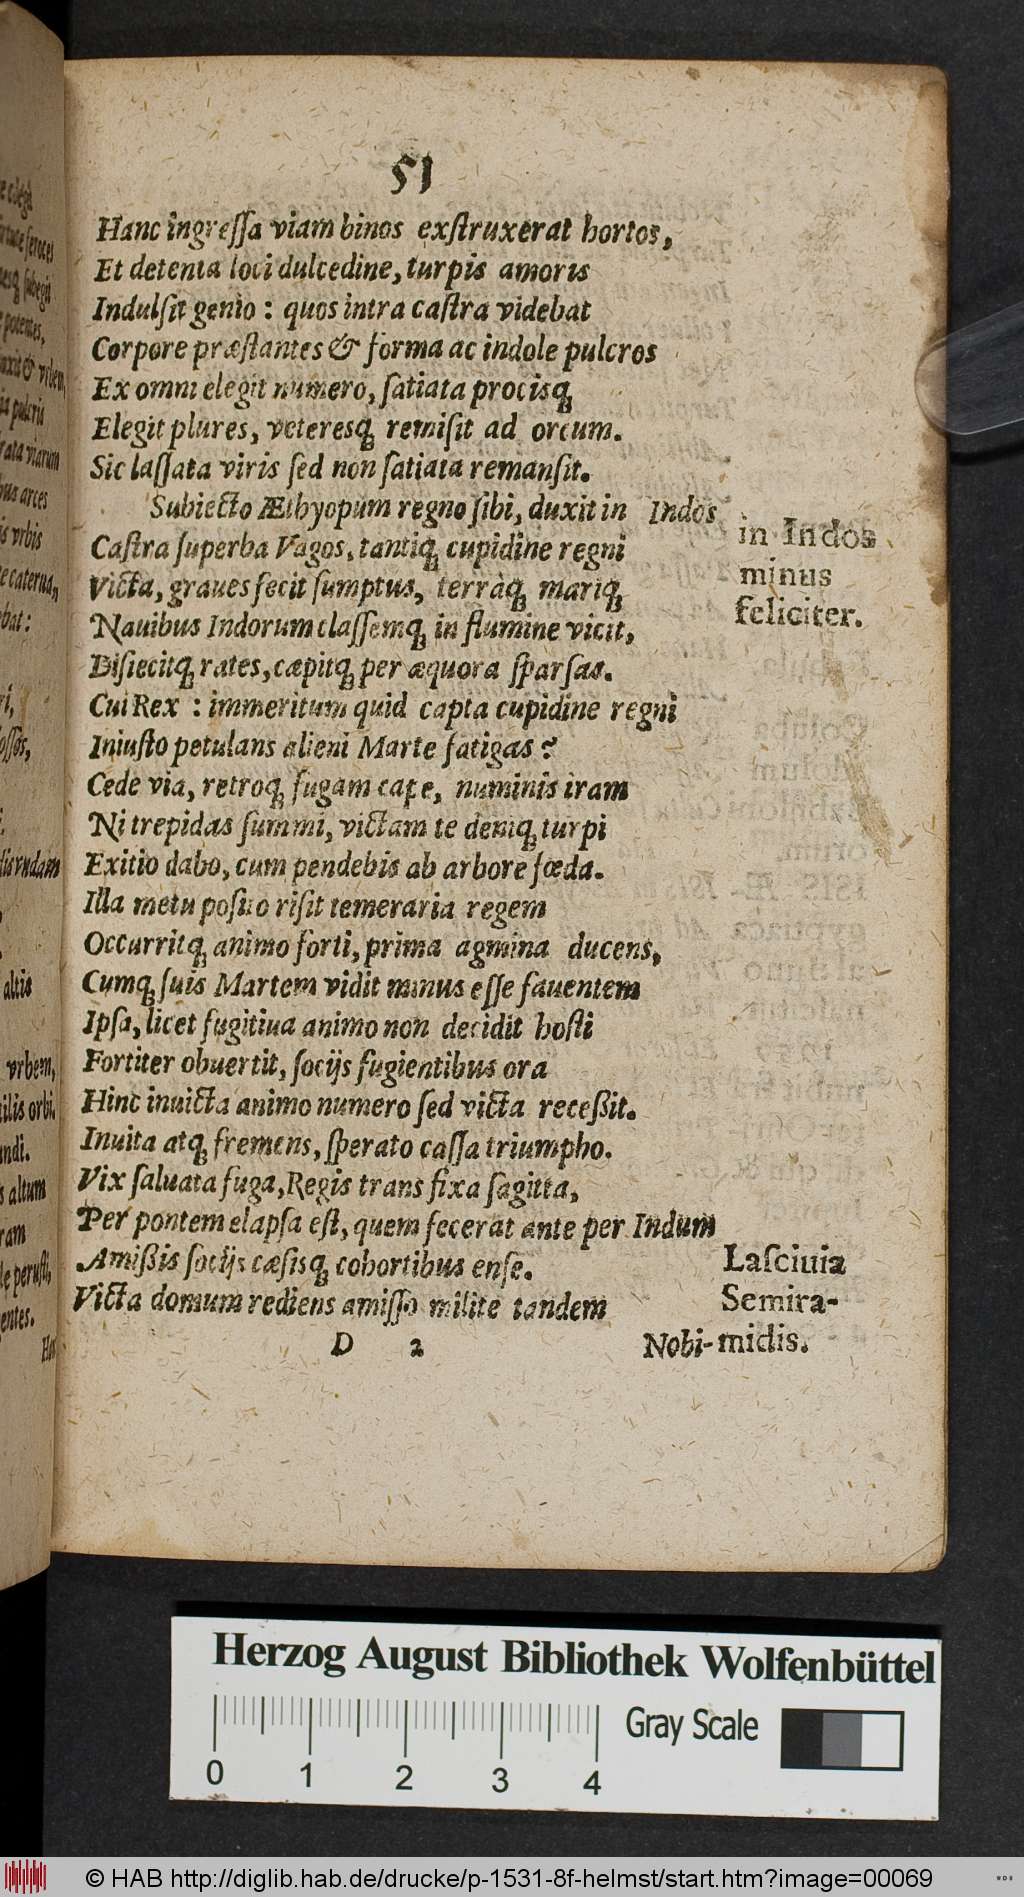 51
Hanc ingreſſa viam binos exſtruxerat hortos,
Et detenta loci dulcedine, turpis amoris
Indulſit genio : quos intra caſtra videbat
Corpore præſtantes & forma ac indole pulcros
Ex omni elegit numero, ſatiata procisq́
Elegit plures, veteresq́ remiſit ad orcum.
Sic laſſata viris ſed non ſatiata remanſit.
Subiecto Æthyopum regno ſibi, duxit in Indos
Caſtra ſuperba Vagos, tantiq́ cupidine regni
Victa, graues fecit ſumptus, terràq́ mariq́
Nauibus Indorum claſſemq́ in flumine vicit,
Diſiecitq́ rates, cæpitq́ per æquora ſparſas.
Cui Rex : immeritum quid capta cupidine regni
Iniuſto petulans alieni Marte fatigas?
Cede via, retroq́ fugam cape, numinis iram
Ni trepidas ſummi, victam te deniq́ turpi
Exitio dabo, cum pendebis ab arbore fœda.
Illa metu poſito riſit temeraria regem
Occurritq́ animo forti, prima agmina ducens,
Cumq́ ſuis Martem vidit minus eſſe fauentem
Ipſa, licet fugitiua animo non decidit hoſti
Fortiter obuertit, ſocijs fugientibus ora
Hinc inuicta animo numero ſed victa receßit.
Inuita atq́ fremens, ſperato caſſa triumpho.
Vix ſaluata fuga, Regis trans fixa ſagitta,
Per pontem elapſa eſt, quem fecerat ante per Indum
Amißis ſocijs cæſisq́ cohortibus enſe.
Victa domum rediens amiſſo milite tandem
D 2
Nobi-
in Indos
minus
feliciter.
Laſciuia
Semira-
midis.
altis
vrbem,
ilis orbi.
undi.
s altum
entes.
Herzog August Bibliothek Wolfenbüttel
0 1 2 3 4
Gray Scale
© HAB http://diglib.hab.de/drucke/p-1531-8f-helmst/start.htm?image=00069